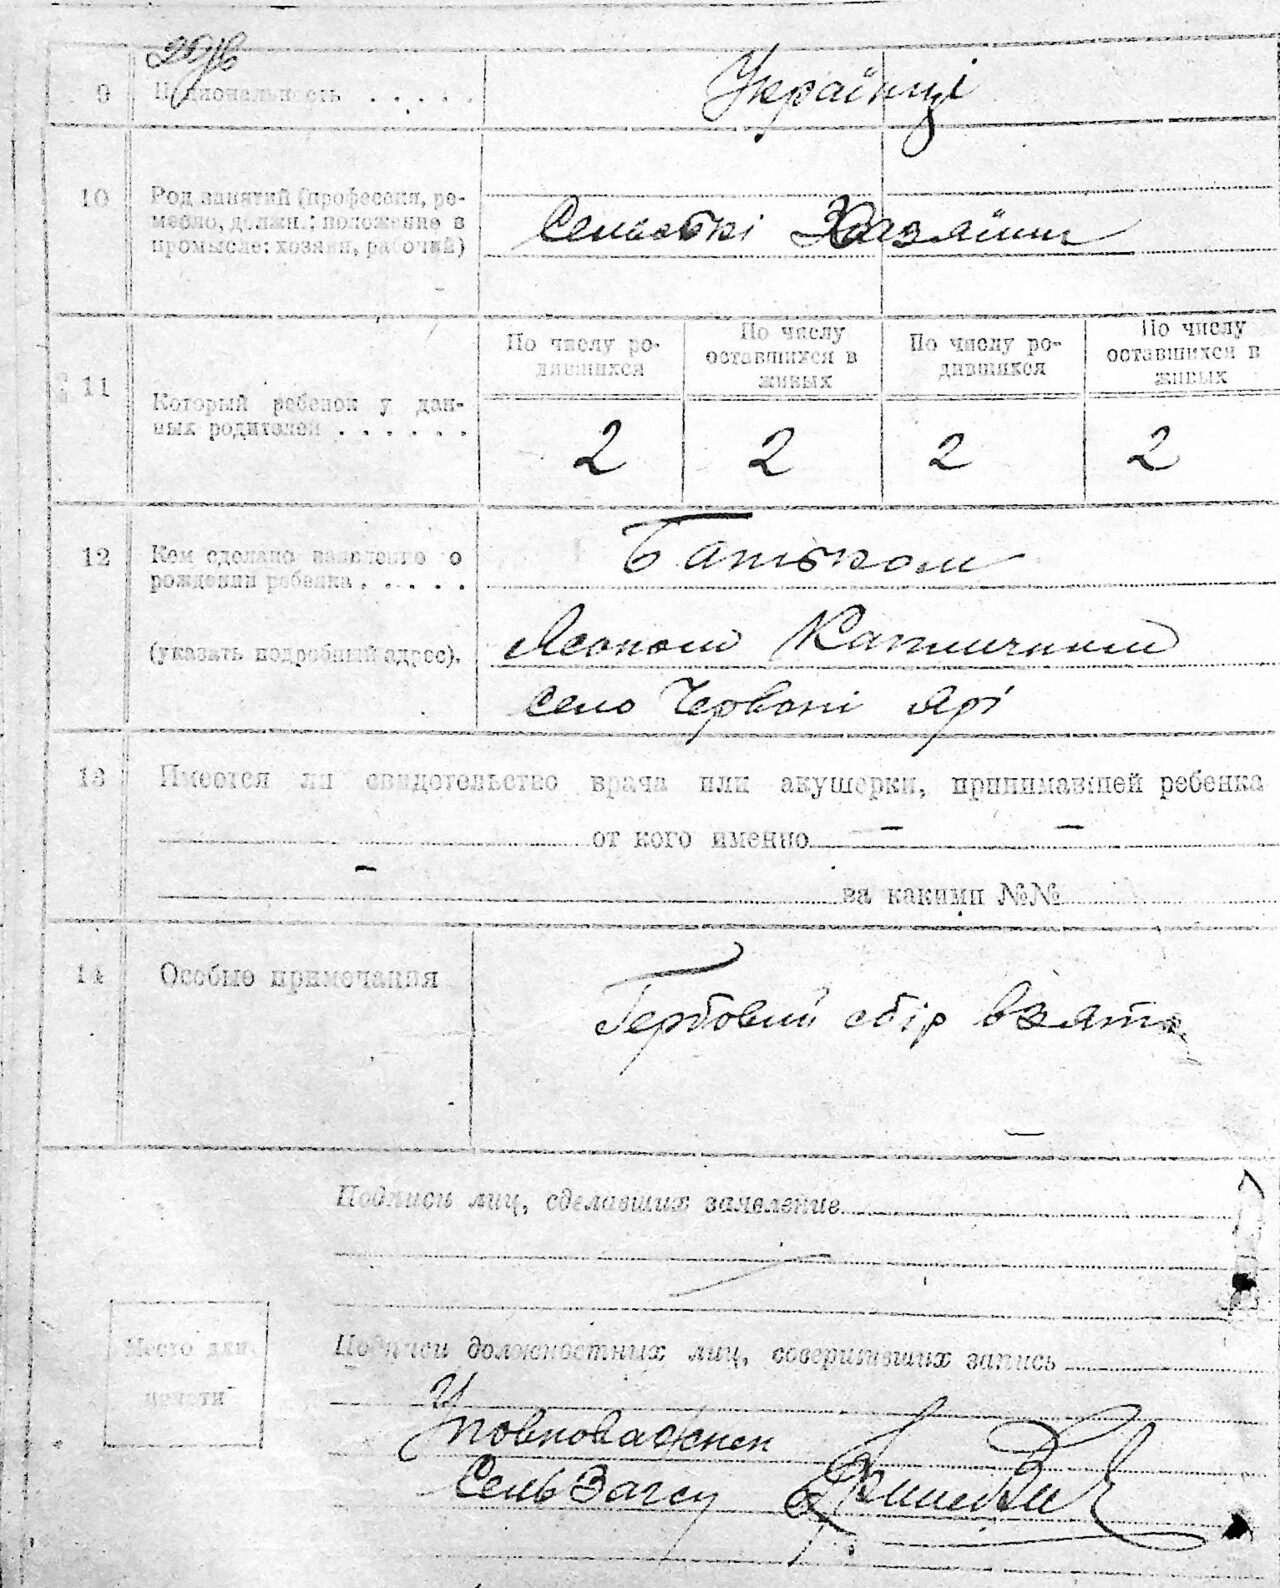 9 Национальность . . . . . Українці
10 Род занятий (профессия, ре-
месло, должн.; положение в
промысле: хозяин, рабочий)
Сельські Хазяїни
По числу ро-
дившихся
По числу
оставшихся в
живых
По числу ро-
дившихся
По числу
оставшихся в
живых
11 Который ребенок у дан-
ных родителей . . . . . .
2 2 2 2
12 Кем сделано заявление о
рождении ребенка . . . . .
(указать подробный адрес).
Батьком
село Червоні Ярі
13 Имеется ли свидетельство врача или акушерки, принимавшей ребенка
от кого именно
за какими №№
14 Особые примечания
Гербовий сбір взято
Подписи лиц, сделавших заявление
Место для
печати
Подписи должностных лиц, совершивших запись
Уповноважнен
СельЗагсу